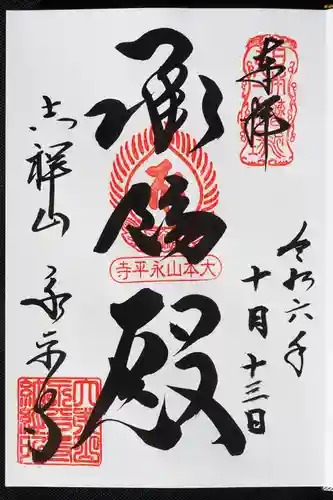 奉拝
令和六年
十月十三日
承陽殿
大本山永平寺
吉祥山
永平寺